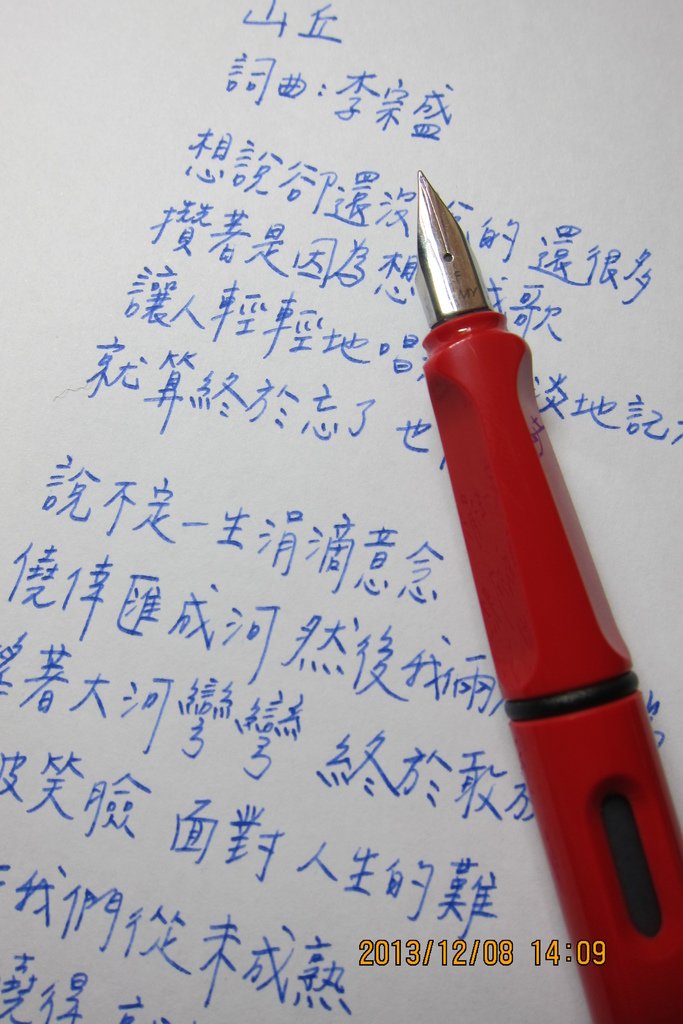 山丘
詞曲：李宗盛
想說卻還沒 的 還很多
攢著是因為想 歌
讓人輕輕地唱
就算終於忘了 也 淡地記
說不定一生涓滴意念
僥倖匯成河 然後我倆
著大河彎彎 終於敢放
皮笑臉 面對人生的難
我們從未成熟
曉得
F
2013/12/08 14:09